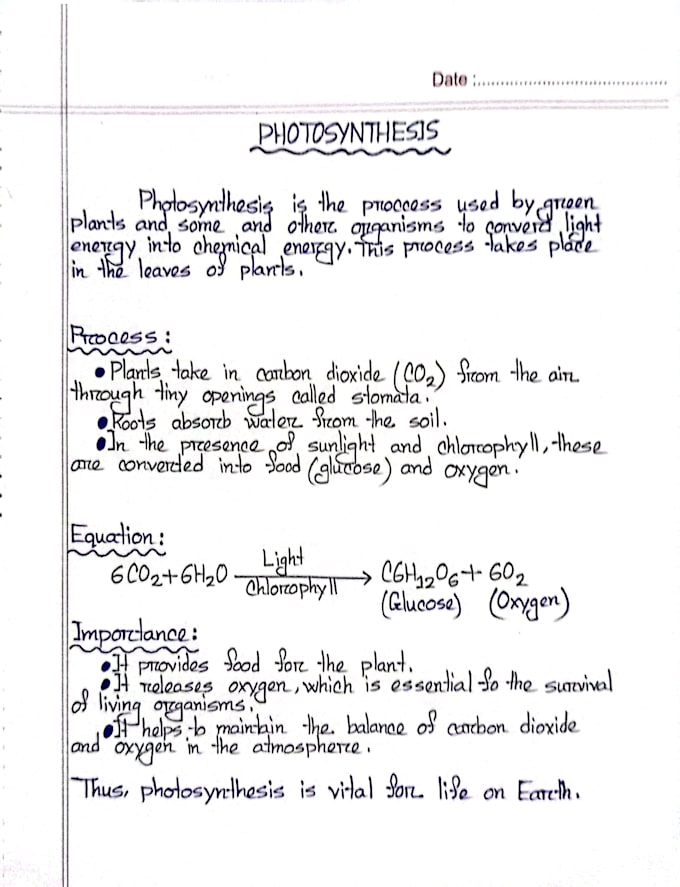 Date :
PHOTOSYNTHESIS
Photosynthesis is the proccess used by green
plants and some and other organisms to convert light
energy into chemical energy. This process takes place
in the leaves of plants.
Process:
• Plants take in carbon dioxide (CO₂) from the air
through tiny openings called stomata.
• Roots absorb water from the soil.
• In the presence of sunlight and chlorophyll, these
are converted into food (glucose) and oxygen.
Equation:
Light
6CO₂+6H₂O → C6H₁₂O₆+ 6O₂
Chlorophyll
(Glucose) (Oxygen)
Importance:
• It provides food for the plant.
• It releases oxygen, which is essential fo the survival
of living organisms.
• It helps to maintain the balance of carbon dioxide
and oxygen in the atmosphere.
Thus, photosynthesis is vital for life on Earth.